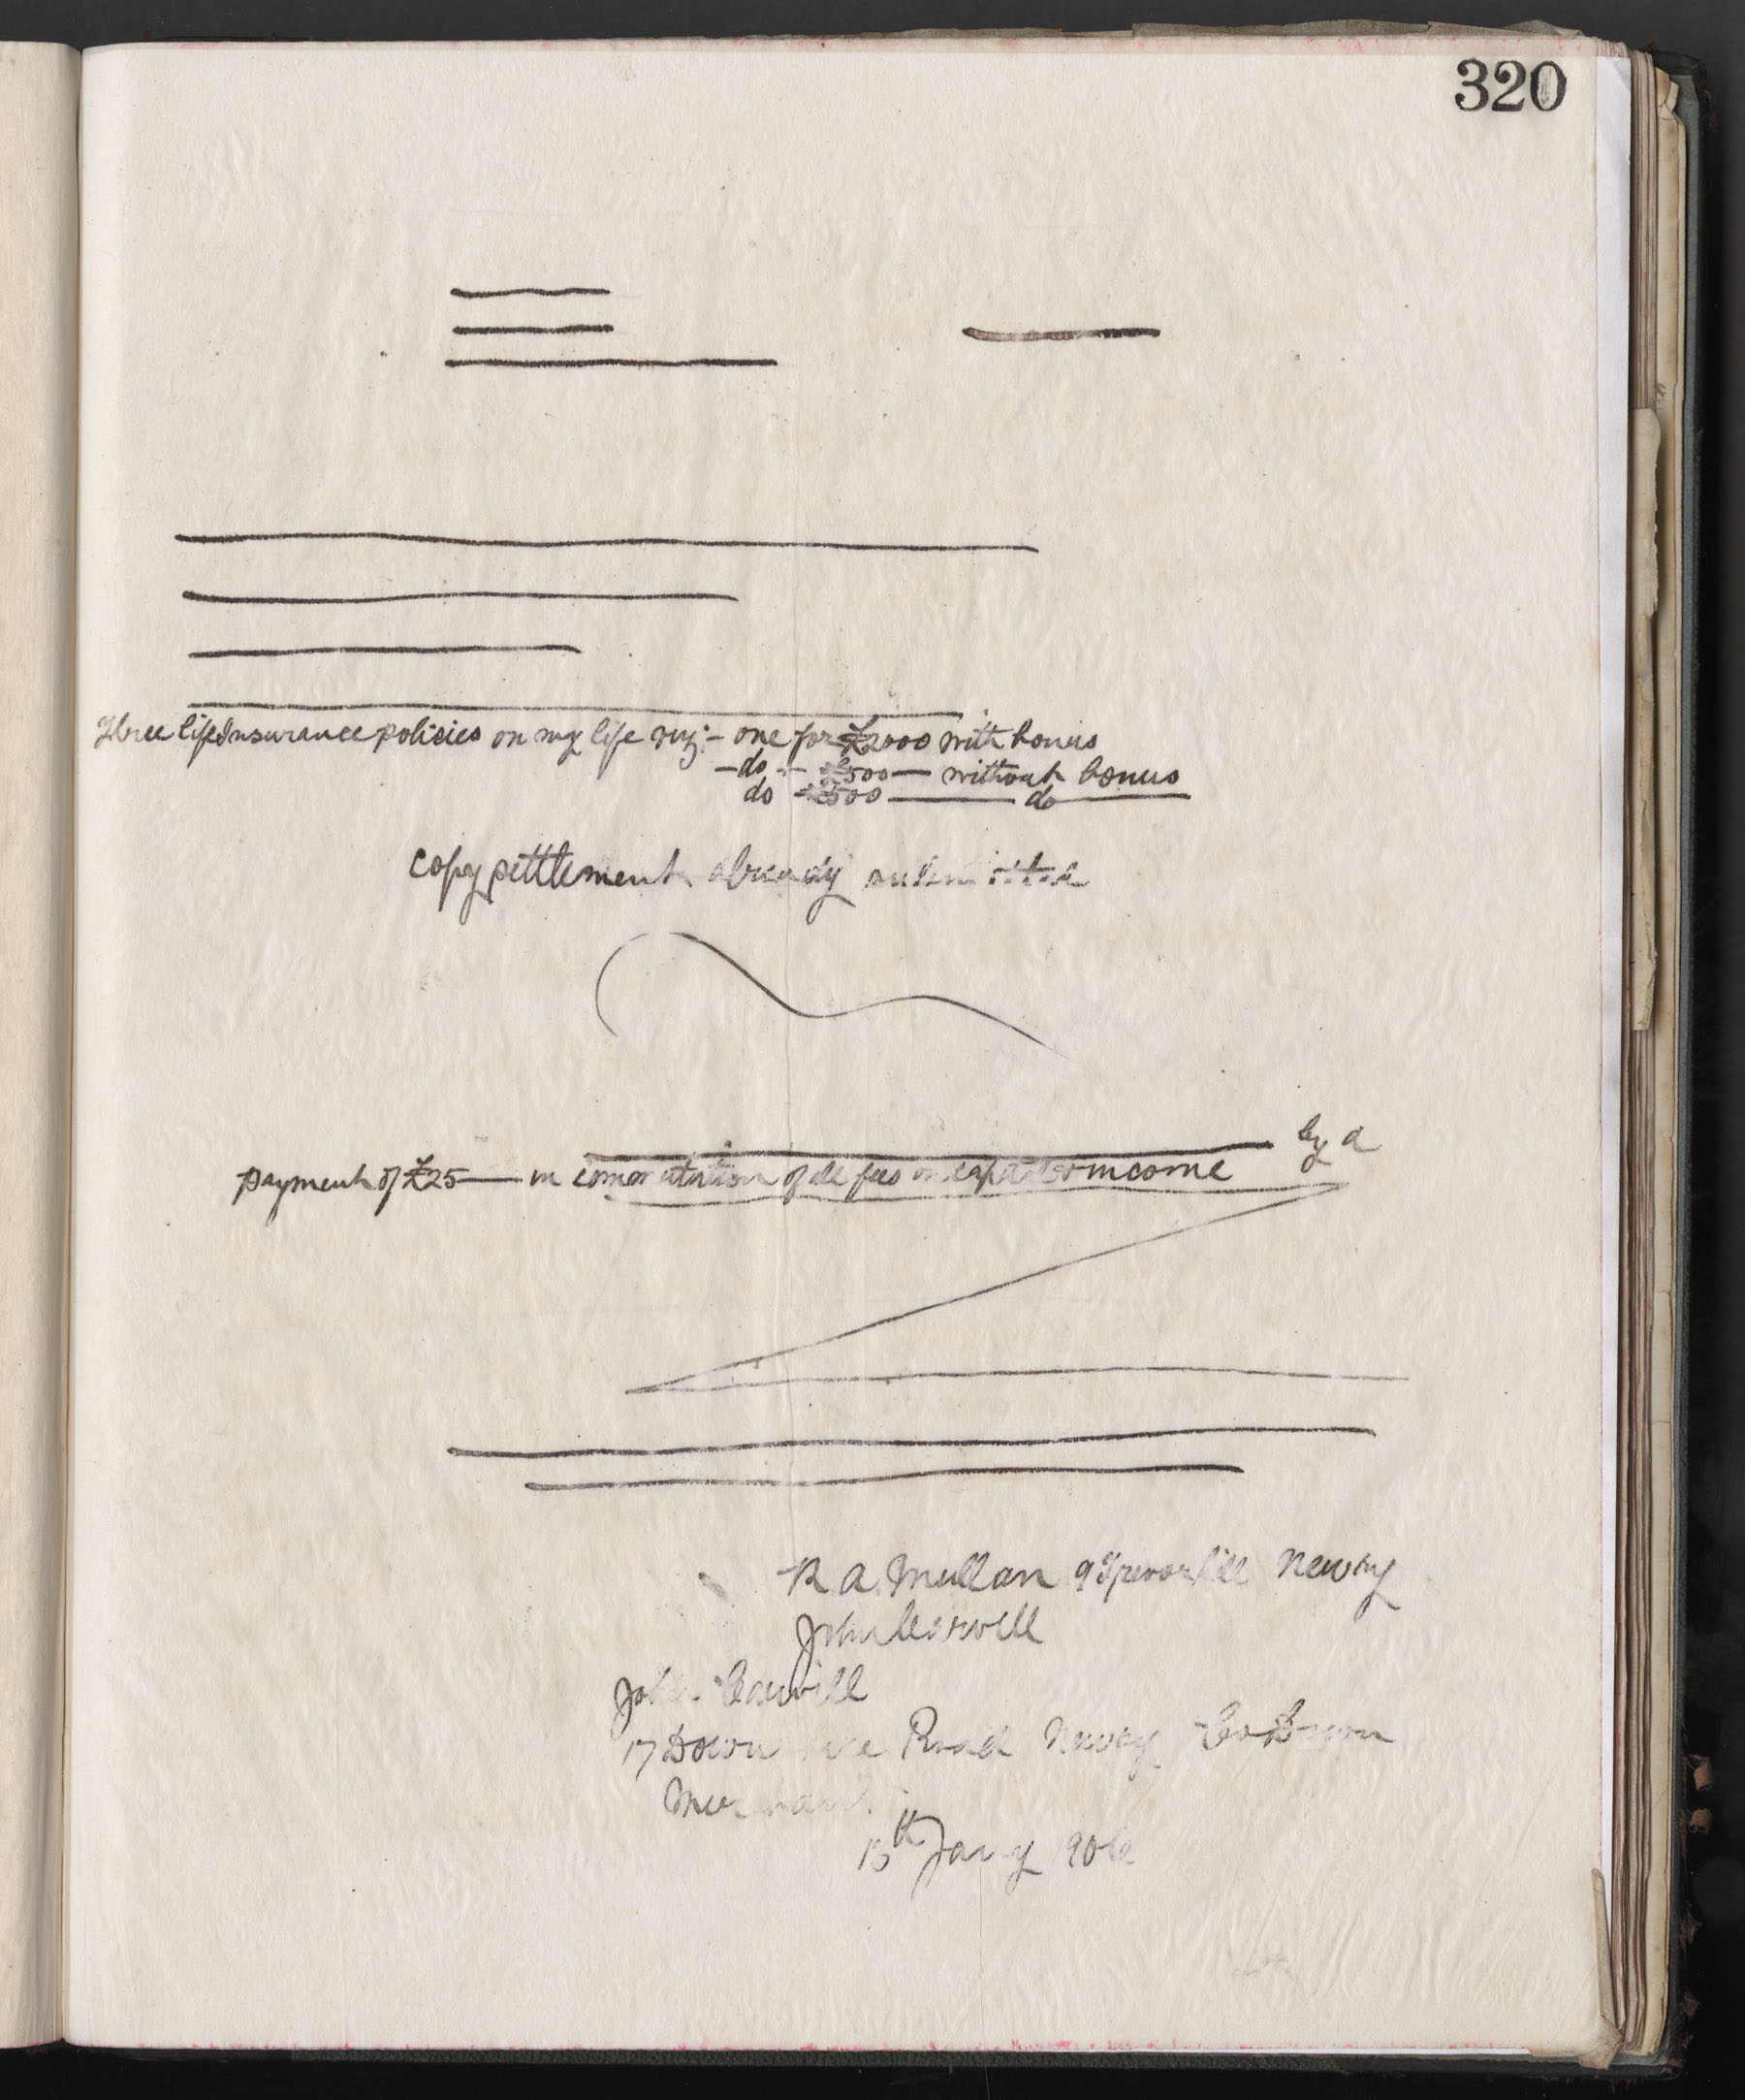 320
Three life Insurance policies on my life viz:- one for £2000 with bonus
- do - £500 - without bonus
do £500 - do
copy settlement already submitted
by a
payment of £25 - in commutation of all fees on capital or income
R A Mullan 9 Trevor hill Newry
John
John
17 Road Newry Co Down
15th Jany 1906